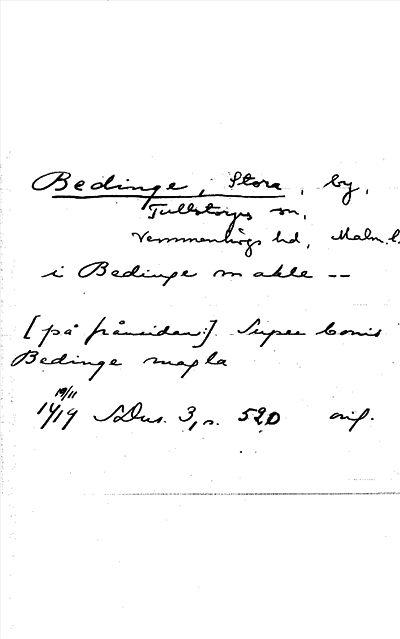 Bedinge, Stora, by,
Tullstorps sn,
Vemmenhögs hd, Malm.l.
i Bedinge makle --
[på frånsidan:]. Super bonis
Bedinge magla
19/11
1419 SDns. 3, s. 520 orig.